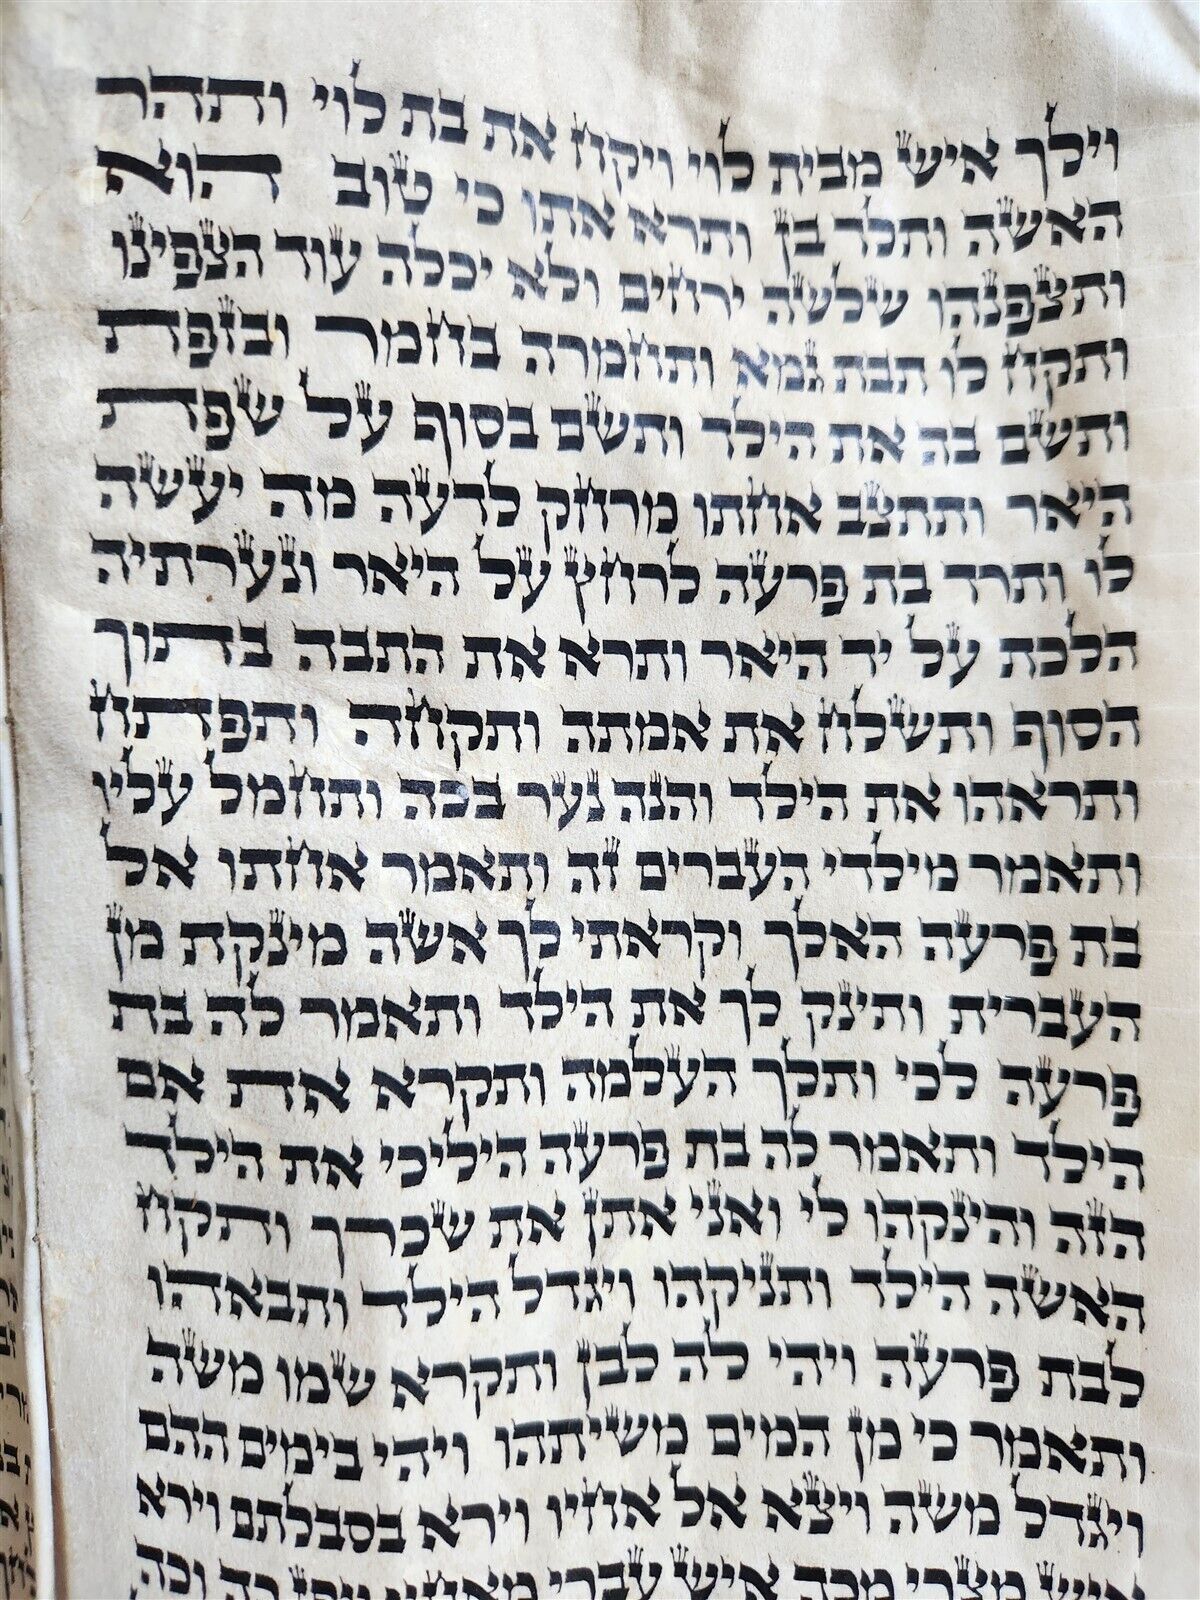 וילך איש מבית לוי ויקח את בת לוי ותהר
האשה ותלד בן ותרא אתו כי טוב הוא
ותצפנהו שלשה ירחים ולא יכלה עוד הצפינו
ותקח לו תבת גמא ותחמרה בחמר ובזפת
ותשם בה את הילד ותשם בסוף על שפת
היאר ותתצב אחתו מרחק לדעה מה יעשה
לו ותרד בת פרעה לרחץ על היאר ונערתיה
הלכת על יד היאר ותרא את התבה בתוך
הסוף ותשלח את אמתה ותקחה ותפתח
ותראהו את הילד והנה נער בכה ותחמל עליו
ותאמר מילדי העברים זה ותאמר אחתו אל
בת פרעה האלך וקראתי לך אשה מינקת מן
העברית ותינק לך את הילד ותאמר לה בת
פרעה לכי ותלך העלמה ותקרא את אם
הילד ותאמר לה בת פרעה היליכי את הילד
הזה והינקהו לי ואני אתן את שכרך ותקח
האשה הילד ותניקהו ויגדל הילד ותבאהו
לבת פרעה ויהי לה לבן ותקרא שמו משה
ותאמר כי מן המים משיתהו ויהי בימים ההם
ויגדל משה ויצא אל אחיו וירא בסבלתם וירא
איש מצרי מכה איש עברי מאחיו ויפן כה וכה